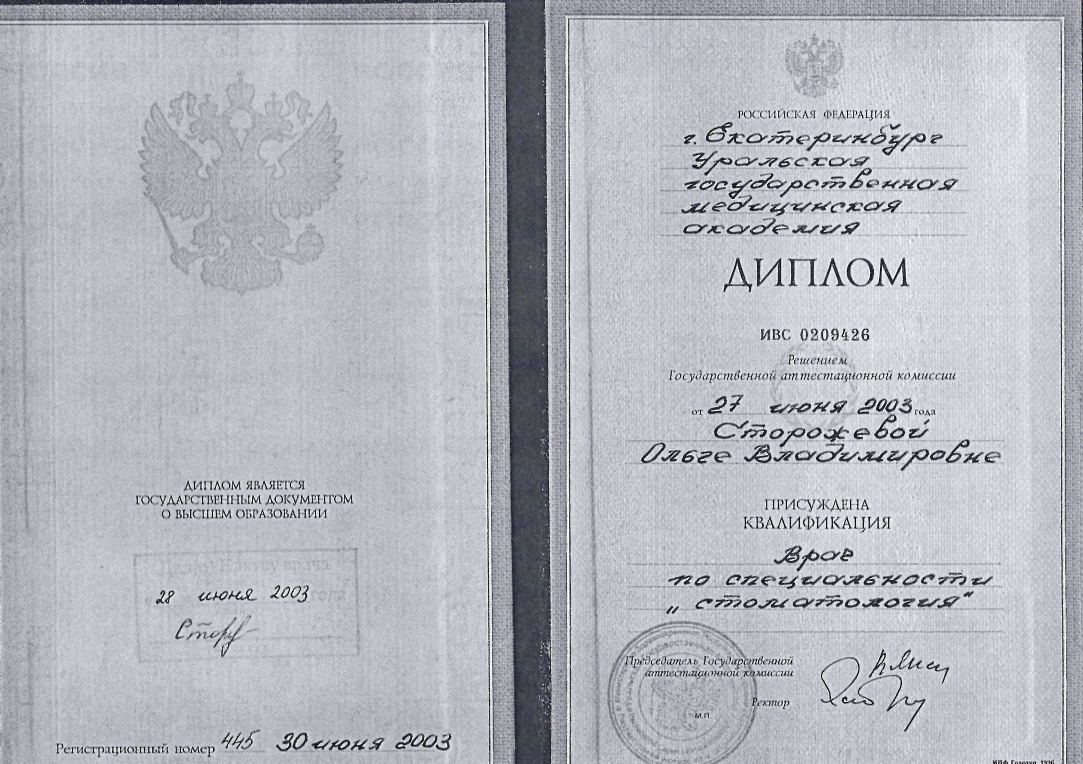 ДИПЛОМ ЯВЛЯЕТСЯ
ГОСУДАРСТВЕННЫМ ДОКУМЕНТОМ
О ВЫСШЕМ ОБРАЗОВАНИИ
28 июня 2003
Регистрационный номер 445 30 июня 2003
РОССИЙСКАЯ ФЕДЕРАЦИЯ
г. Екатеринбург
Уральская
государственная
медицинская
академия
ДИПЛОМ
ИВС 0209426
Решением
Государственной аттестационной комиссии
от 27 июня 2003 года
Сторожевой
Ольге Владимировне
ПРИСУЖДЕНА
КВАЛИФИКАЦИЯ
Врач
по специальности
„ стоматология“
Председатель Государственной
аттестационной комиссии
Ректор
М.П.